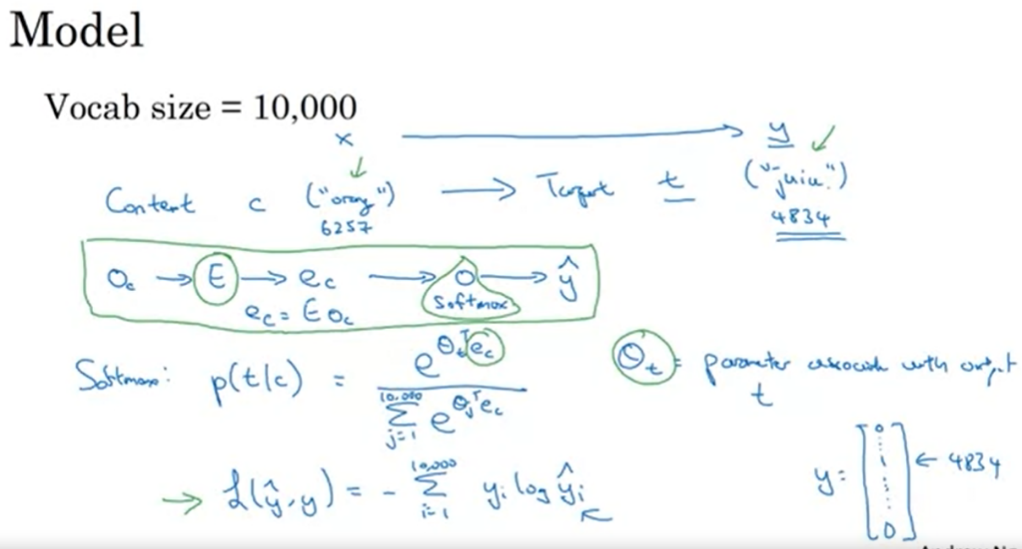 Model
Vocab size = 10,000
x → y
Context c ("orange") → Target t ("juice")
6257 4834
O_c → E → e_c → O → ŷ
Softmax
e_c = E O_c
Softmax: p(t|c) = e^{θ_t^T e_c} / Σ_{j=1}^{10,000} e^{θ_j^T e_c}
θ_t = parameter associated with output t
L(ŷ, y) = - Σ_{i=1}^{10,000} y_i log ŷ_i
y = [0 ⋮ 1 ⋮ 0] ← 4834